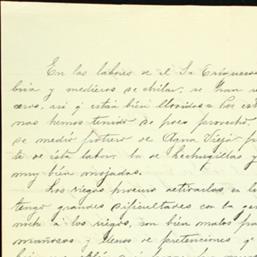 En las labores de el Sr Trigueros
bria y medieros de chilar, se han re
ceros, asi q están bién llovidos. Por est
nas hemos tenido de poco provecho,
se medió potrero de Agua Vieja p
te de esta labor, la de Lechuguillas y
muy bién mojadas.
Los riegos procuro activarlos en lo
tengo grandes dificultades con la gen
mita á los riegos, son bien malos pa
mañosos y llenos de pretenciones q